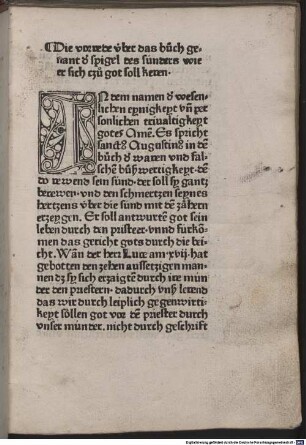 ¶Die vorrede v̈ber das bůch ge-
nant d̕ spigel des sünders wie
er sich czů got soll keren.
IN dem namen d̕ wesen-
lichen eynigkeyt vñ per
sonlichen triualtigkeyt
gotes Amē. Es spricht
sanctꝰ Augustinꝰ in dē
bůch d̕ waren vnd fal-
schē bůßwertigkeyt. dē
do rewend sein sünd. der soll sy gantz
berewen. vnd den schmertzen seynes
hertzens v̈ber die sünd mit dē zähern
erzeygen. Er soll antwurtē got sein
leben durch den priester. vnnd fürkō-
men das gericht gots durch die bei
cht. Wañ der herr Luce am .xvij. hat
gebotten den zehen aussetzigen man-
nen dz sy sich erzaigtē durch ire mün
der den priestern. dadurch vnß lerend
das wir durch leiplich gegenwirti-
keyt söllen got vor dē priester durch
vnser münder. nicht durch geschrift